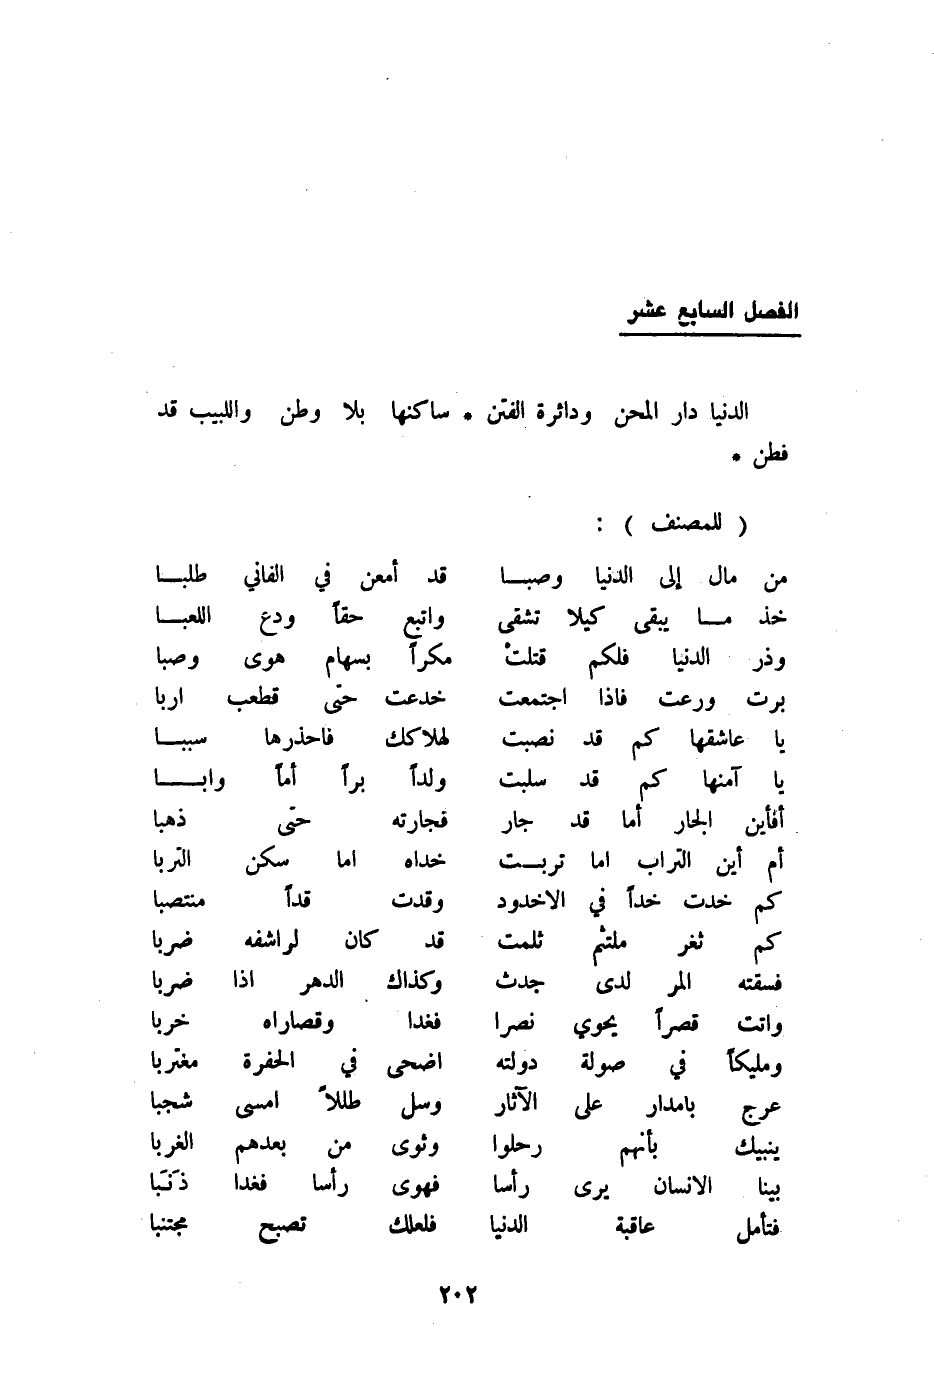 الفصل السابع عشر
الدنيا دار المحن ودائرة الفتن * ساكنها بلا وطن واللبيب قد
فطن *
( للمصنف ) :
من مال إلى الدنيا وصبـــا قد أمعن في الفاني طلبـــا
خذ مـــا يبقى كيلا تشقى واتبع حقاً ودع اللعبـــا
وذر الدنيا فلكم قتلتْ مكراً بسهام هوى وصبا
برت ورعت فاذا اجتمعت خدعت حتى قطعب اربا
يا عاشقها كم قد نصبت لهلاكك فاحذرها سببـــا
يا آمنها كم قد سلبت ولداً براً أماً وابـــا
أفأين الجار أما قد جار فجارته حتى ذهبا
أم أين التراب اما تربـــت خداه اما سكن التربا
كم خدت خداً في الاخدود وقدت قداً منتصبا
كم ثغر ملتثم ثلمت قد كان لراشفه ضربا
فسقته المر لدى جدث وكذاك الدهر اذا ضربا
واتت قصراً يحوي نصرا فغدا وقصاراه خربا
ومليكاً في صولة دولته اضحى في الحفرة مغتربا
عرج بامدار على الآثار وسل طللاً امسى شجبا
ينبيك بأنهم رحلوا وثوى من بعدهم الغربا
بينا الانسان يرى رأسا فهوى رأسا فغدا ذَنَبا
فتأمل عاقبة الدنيا فلعلك تصبح مجتنبا
٢٠٢